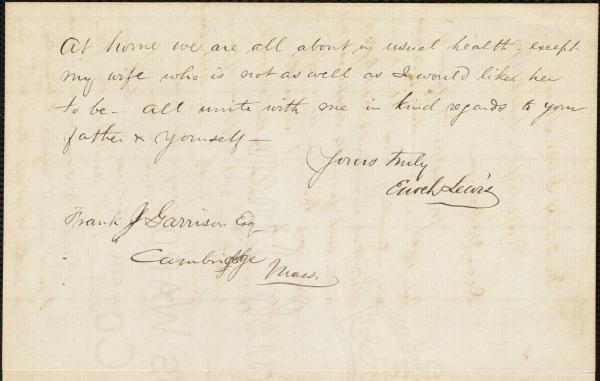 At home we are all about in usual health - except
my wife who is not as well as I would like her
to be - all unite with me in kind regards to your
father & yourself -
Yours truly
Enoch Lewis
Frank J Garrison Esq
Cambridge
Mass.